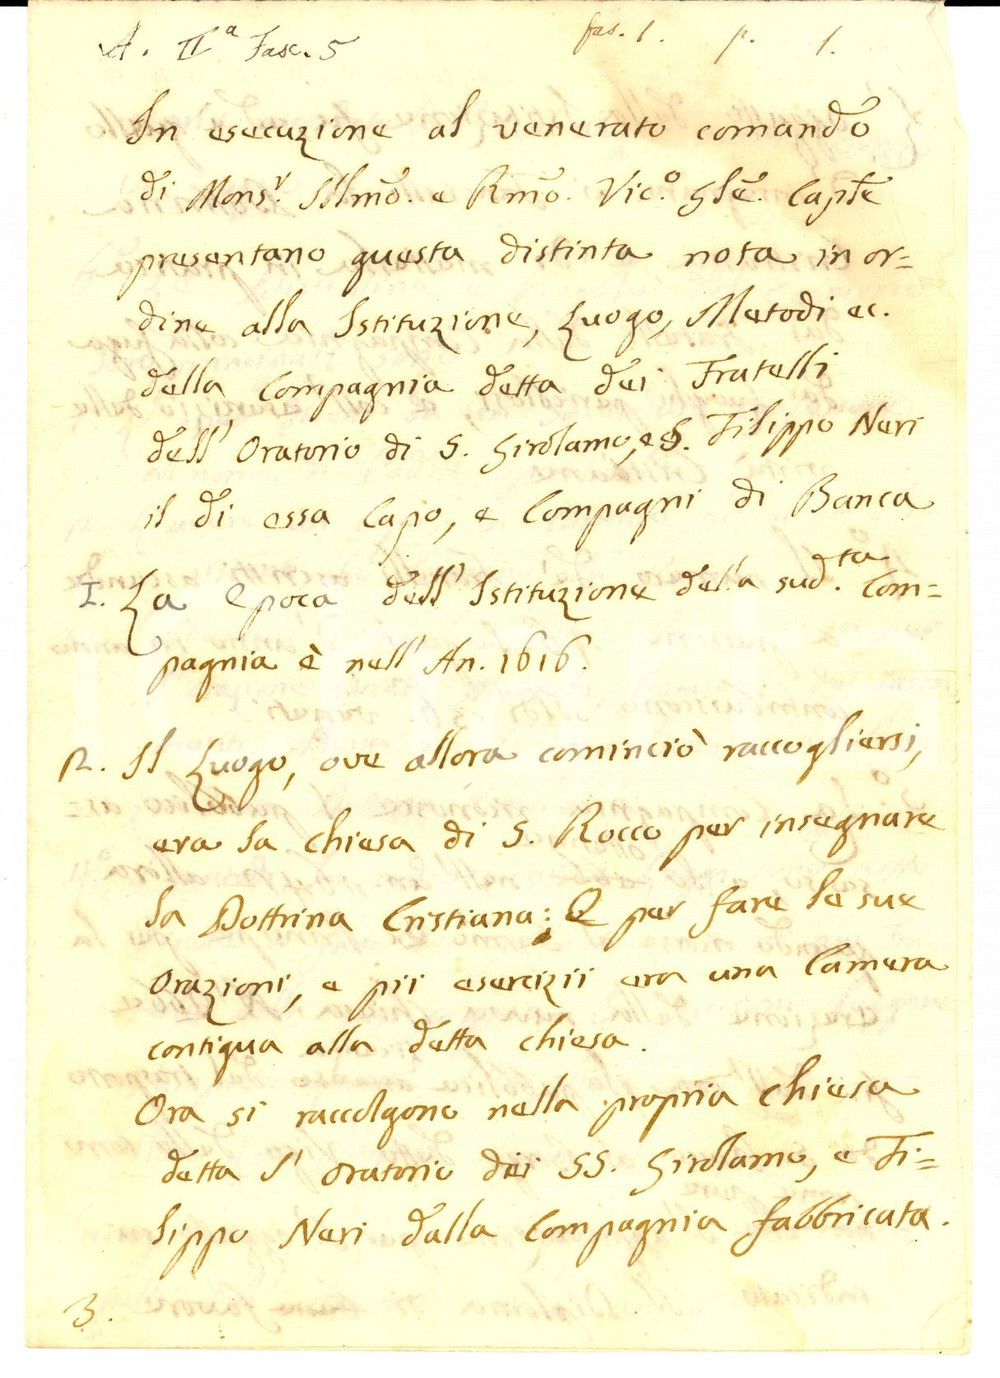 A. IIª Fasc. 5 fas. 1. p. 1.
In esecuzione al venerato comando
di Monsr. Illmo. e Rmo. Vic.º Gle. Caple
presentano questa distinta nota in or=
dine alla Istituzione, Luogo, Metodi ec.
della Compagnia detta dei Fratelli
dell' Oratorio di S. Girolamo, e S. Filippo Neri
il di essa Capo, e Compagni di Banca
I. La Epoca dell' Istituzione della sud.ta Com=
pagnia è nell' An. 1616.
2. Il Luogo, ove allora cominciò raccogliersi,
era la chiesa di S. Rocco per insegnare
la Dottrina Cristiana; E per fare le sue
Orazioni, e pii esercizii era una Camera
contigua alla detta chiesa.
Ora si raccolgono nella propria chiesa
detta l' Oratorio dei SS. Girolamo, e Fi=
lippo Neri dalla Compagnia fabbricata.
3.